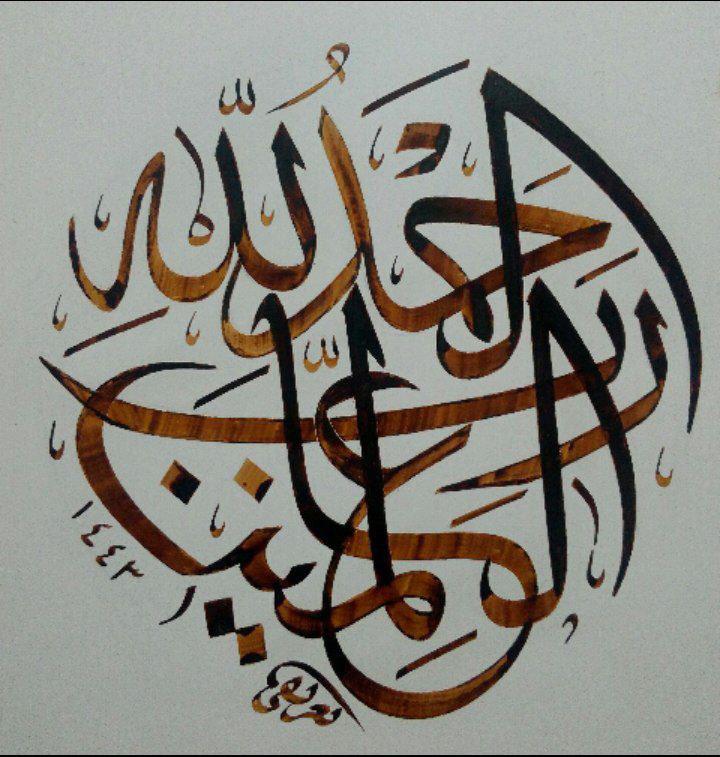 الْحَمْدُ لِلَّهِ
رَبِّ الْعَالَمِينَ
١٤٤٣